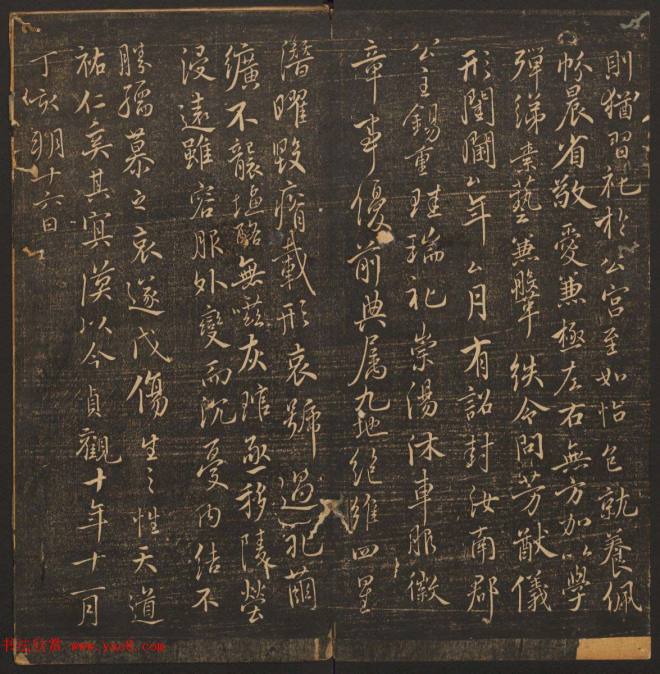 則猶習礼於公宮至如怡色就養佩
帉晨省敬愛兼極左右無方加以學
殫綈素藝兼鞶紩令問芳猷儀
形閨閫厶年厶月有詔封汝南郡
公主錫重珪瑞礼崇湯沐車服徽
章事優前典屬九地絶維四星
潛曜毀瘠載形哀號過礼繭
纊不襲塩酪無嗞灰琯亟移陵塋
浸遠雖容服外變而沈憂内結不
勝孺慕之哀遂成傷生之性天道
祐仁奚其冥漠以今貞觀十年十一月
丁亥朔十六日
书法欣赏 www.yac8.com